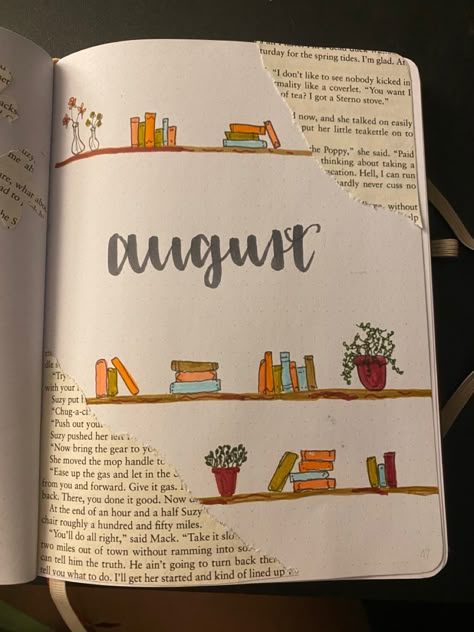 turday for the spring tides. I'm glad. At
"I don't like to see nobody kicked in
mality like a coverlet. "You want I
of tea? I got a Sterno stove."
now, and she talked on easily
put her little teakettle on to
the Poppy," she said. "Paid
thinking about taking a
acation. Hell, I can run
ardly never cuss no
without
august
"Try
with your
Suzy put
"Chug-a-c
"Push out you
Suzy pushed her left
"Now bring the gear to yo
She moved the mop handle to
"Ease up the gas and let in the c
from you and forward. Give it gas.
back. There, you done it good. Now
At the end of an hour and a half Suzy
chair roughly a hundred and fifty miles.
"You'll do all right," said Mack. "Take it slo
two miles out of town without ramming into so
can tell him the truth. He ain't going to turn back the
tell you what to do. I'll get her started and kind of lined up